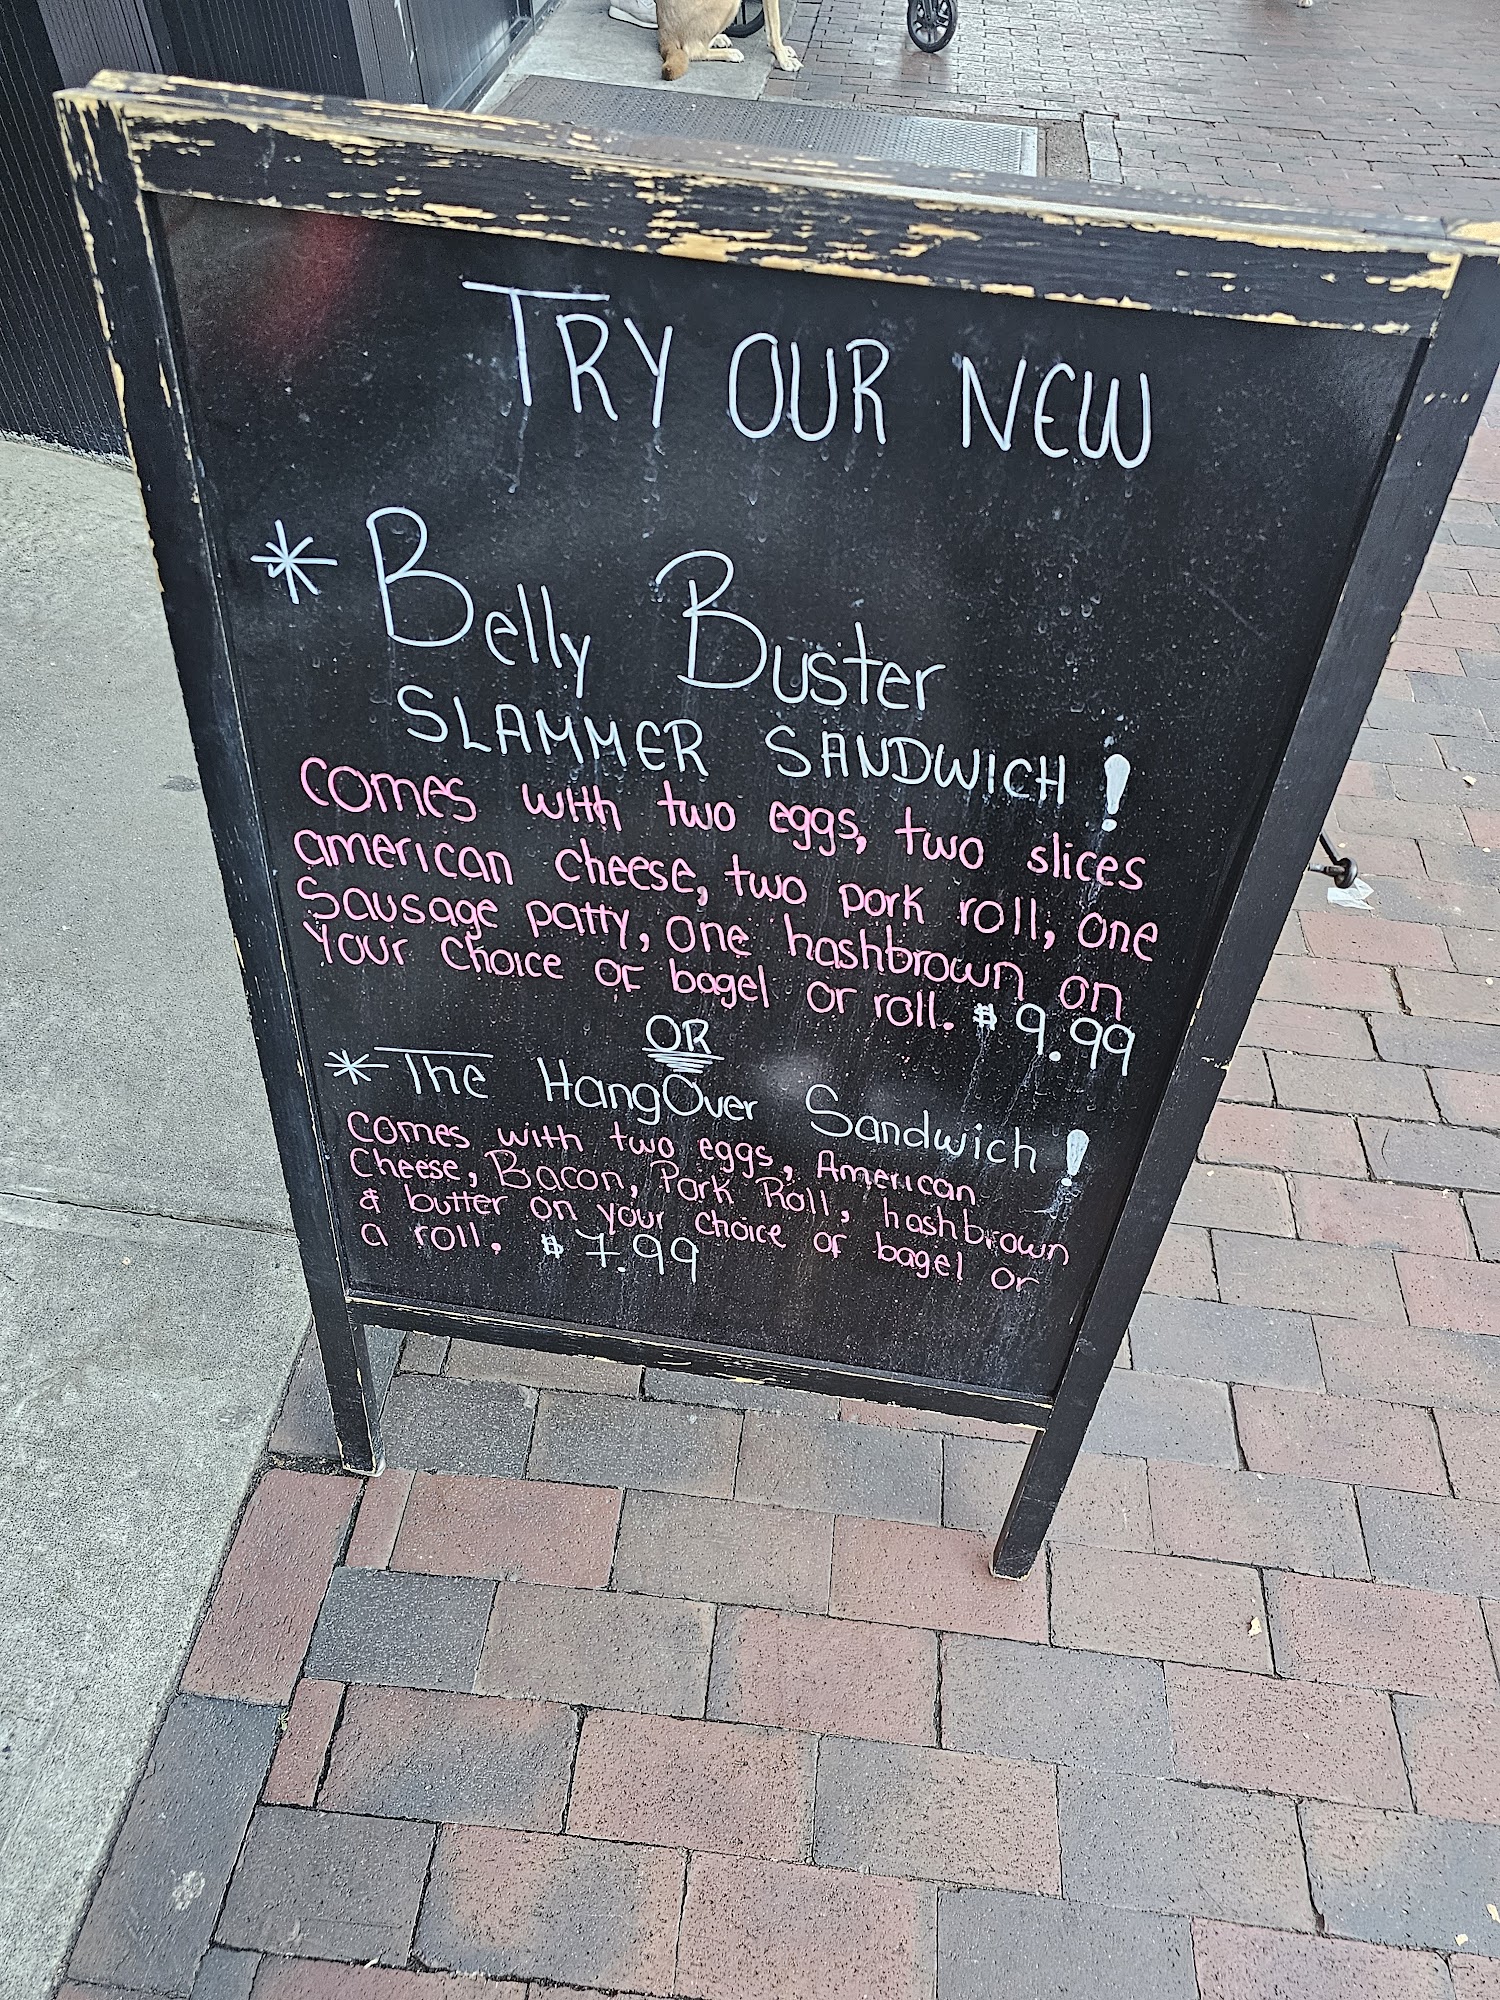 TRY OUR NEW
* Belly Buster
SLAMMER SANDWICH!
comes with two eggs, two slices
american cheese, two pork roll, one
Sausage patty, one hashbrown on
your choice of bagel or roll. $9.99
OR
* The HangOver Sandwich!
comes with two eggs, American
Cheese, Bacon, Pork Roll, hashbrown
& butter on your choice of bagel or
a roll. $7.99